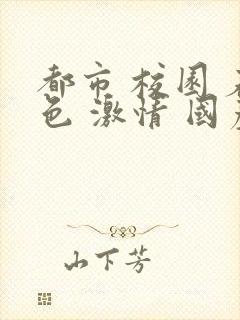 都市 校園
色 激情 國
山下芳